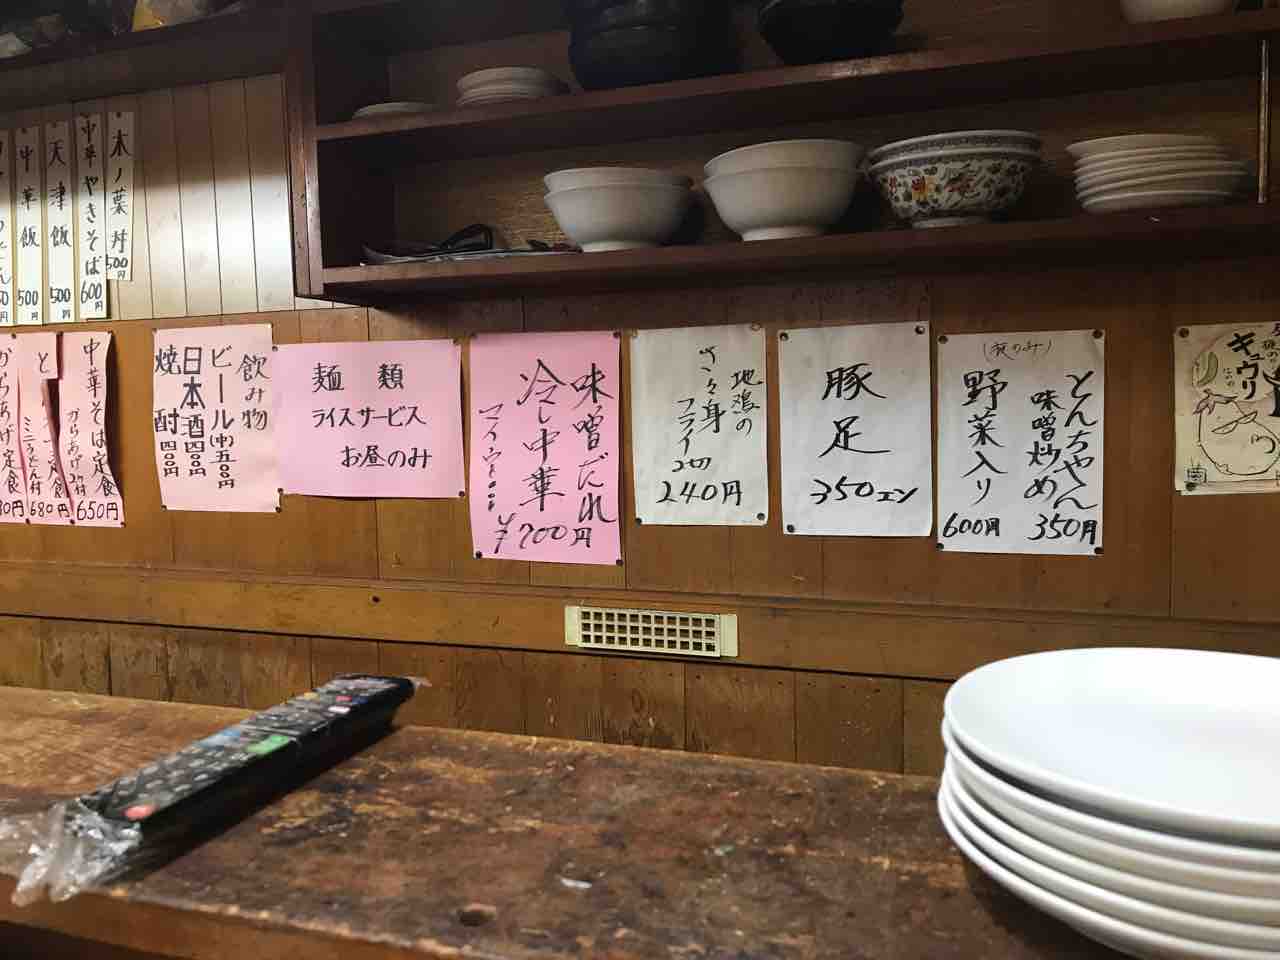 木ノ葉丼
500円
中華やきそば
600円
天津飯
500円
中華飯
500円
中華そば定食
からあげ2ケ付
650円
ミニうどん付
680円
からあげ定食
飲み物
ビール(中)五〇〇円
日本酒四〇〇円
焼酎四〇〇円
麺類
ライスサービス
お昼のみ
味噌だれ
冷し中華
¥700円
地鶏の
ささ身
フライ2切
240円
豚足
350エン
とんちゃん
味噌炒め
350円
(夜のみ)
野菜入り
600円
キュウリ